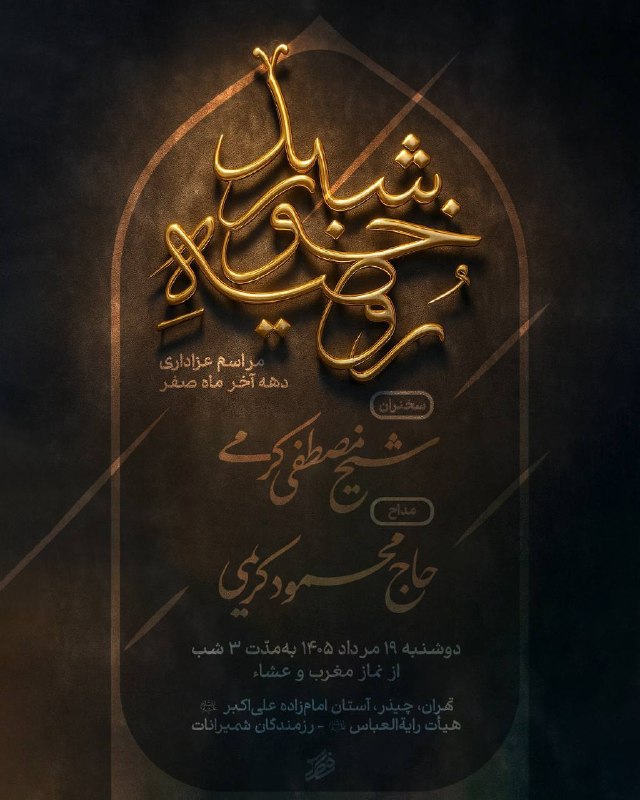 خورشید
مراسم عزاداری
دهه آخر ماه صفر
سخنران
شیخ مصطفی کرمی
مداح
حاج محمود کریمی
دوشنبه ۱۹ مرداد ۱۴۰۵ به‌مدّت ۳ شب
از نماز مغرب و عشاء
تهران، چیذر، آستان امام‌زاده علی‌اکبر
هیأت رایةالعباس - رزمندگان شمیرانات